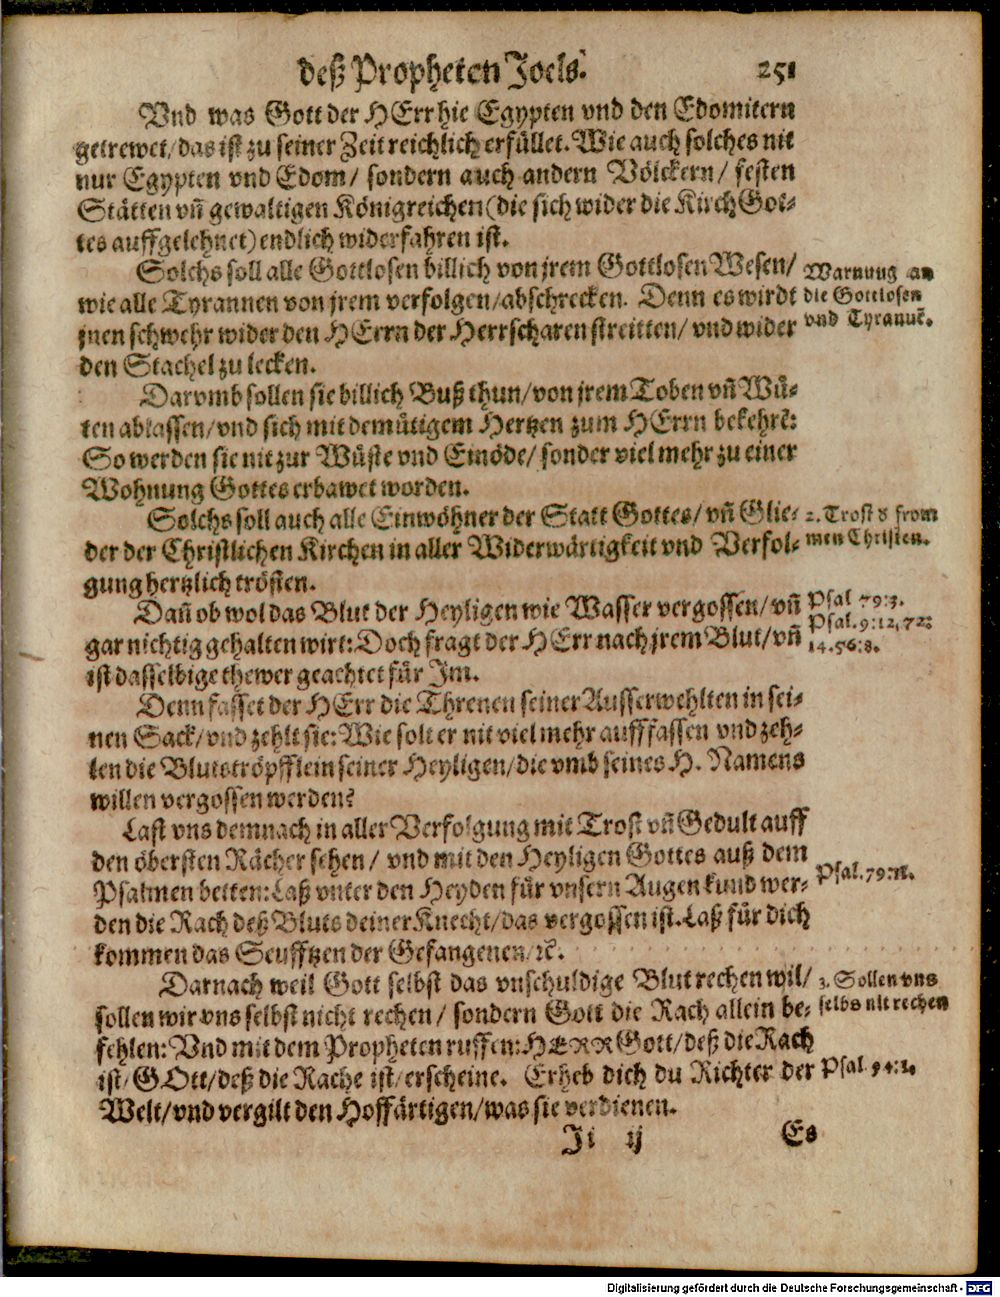 deß Propheten Joels.
251
Vnd was Gott der HErr hie Egypten vnd den Edomitern
getrewet/das ist zu seiner Zeit reichlich erfüllet. Wie auch solches nit
nur Egypten vnd Edom/ sondern auch andern Völckern/ festen
Stätten vñ gewaltigen Königreichen(die sich wider die Kirch Got-
tes auffgelehnet) endlich widerfahren ist.
Solchs soll alle Gottlosen billich von jrem Gottlosen Wesen/
wie alle Tyrannen von jrem verfolgen/abschrecken. Denn es wirdt
jnen schwehr wider den HErrn der Herrscharen streitten/ vnd wider
den Stachel zu lecken.
Warnung an
die Gottlosen
vnd Tyrannē.
Darvmb sollen sie billich Buß thun/von jrem Toben vñ Wü-
ten ablassen/vnd sich mit demütigem Hertzen zum HErrn bekehrē:
So werden sie nit zur Wüste vnd Einöde/ sonder viel mehr zu einer
Wohnung Gottes erbawet worden.
Solchs soll auch alle Einwöhner der Statt Gottes/ vñ Glie-
der der Christlichen Kirchen in aller Widerwärtigkeit vnd Verfol-
gung hertzlich trösten.
2. Trost d from
men Christen.
Dañ ob wol das Blut der Heyligen wie Wasser vergossen/ vñ
gar nichtig gehalten wirt: Doch fragt der HErr nach jrem Blut/vñ
ist dasselbige thewer geachtet für Im.
Psal 79:3.
Psal. 9:12, 72:
14. 56:8.
Denn fasset der HErr die Threnen seiner Ausserwehlten in sei-
nen Sack/vnd zehlt sie: Wie solt er nit viel mehr aufffassen vnd zeh-
len die Blutströpfflein seiner Heyligen/die vmb seines H. Namens
willen vergossen werden?
Last vns demnach in aller Verfolgung mit Trost vñ Gedult auff
den öbersten Rächer sehen/ vnd mit den Heyligen Gottes auß dem
Psalmen betten: Laß vnter den Heyden für vnsern Augen kund wer-
den die Rach deß Bluts deiner Knecht/das vergossen ist. Laß für dich
kommen das Seufftzen der Gefangenen/ꝛc.
Psal. 79:11.
Darnach weil Gott selbst das vnschuldige Blut rechen wil/
sollen wir vns selbst nicht rechen/ sondern Gott die Rach allein be-
fehlen: Vnd mit dem Propheten ruffen: HERR Gott/deß die Rach
ist/GOtt/deß die Rache ist/erscheine. Erheb dich du Richter der
Welt/vnd vergilt den Hoffärtigen/was sie verdienen.
3. Sollen vns
selbs nit rechen
Psal 94:1.
Ji ij
Es
Digitalisierung gefördert durch die Deutsche Forschungsgemeinschaft - DFG